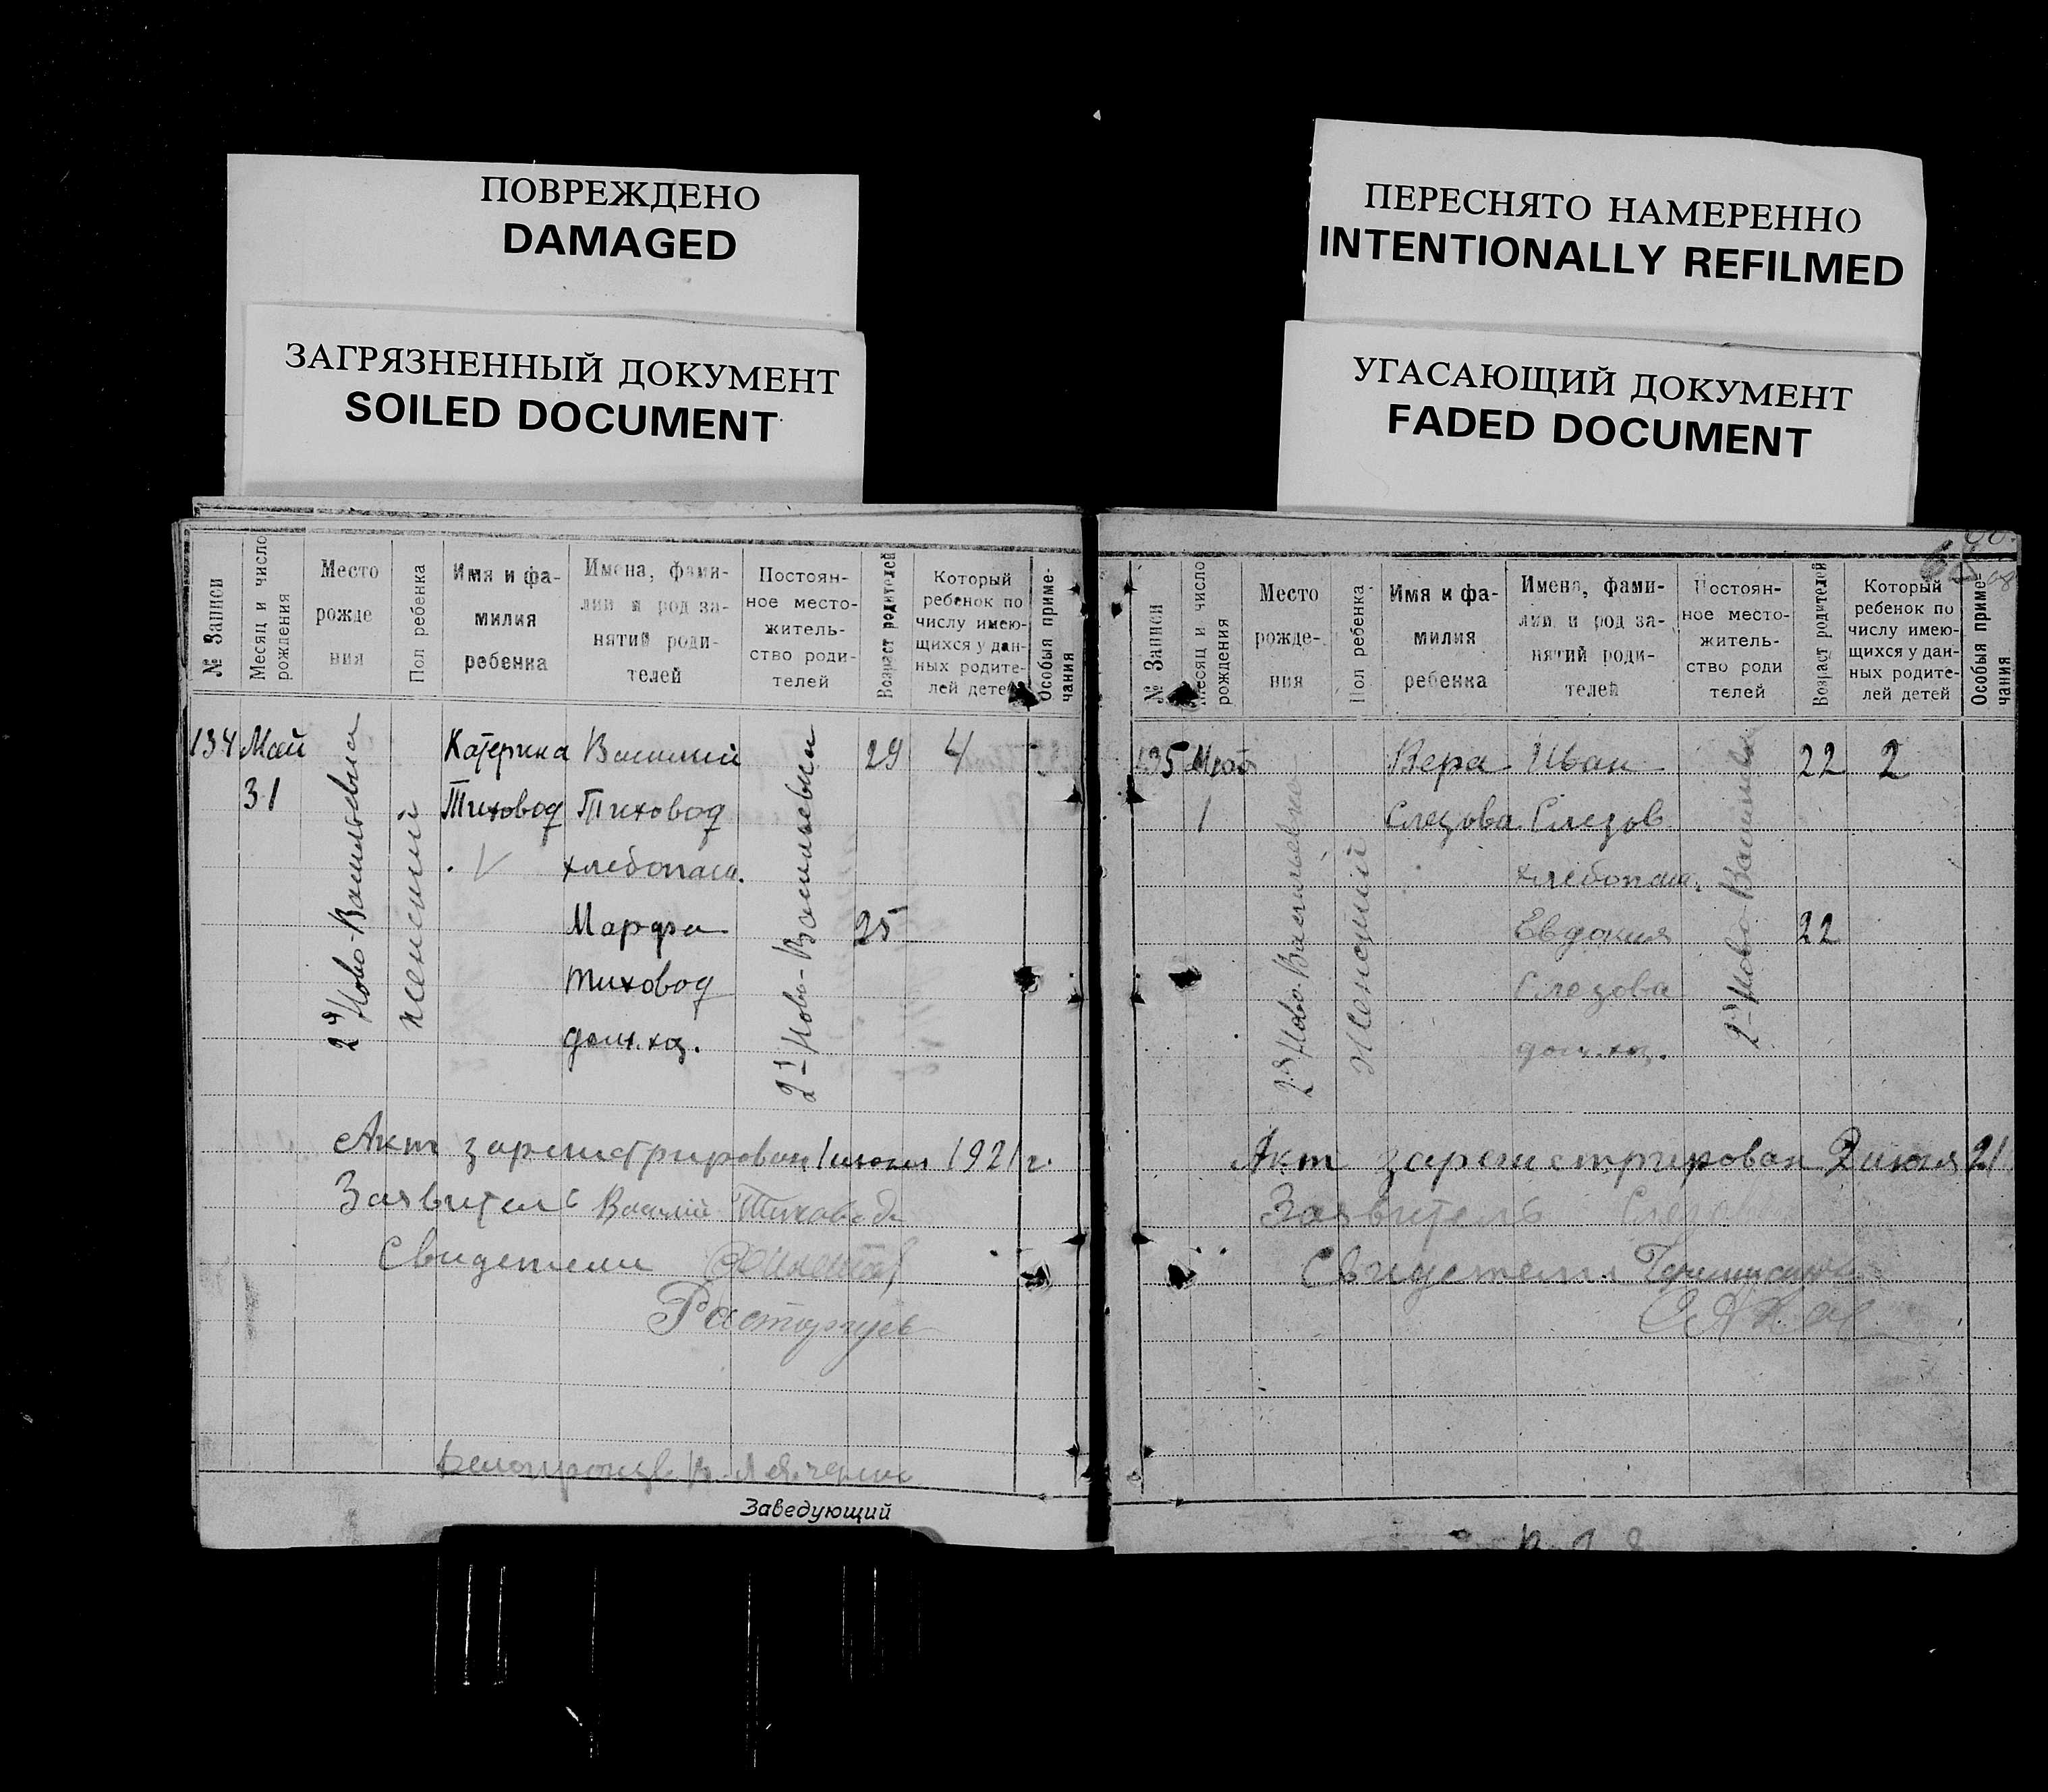 ПОВРЕЖДЕНО
DAMAGED
ЗАГРЯЗНЕННЫЙ ДОКУМЕНТ
SOILED DOCUMENT
ПЕРЕСНЯТО НАМЕРЕННО
INTENTIONALLY REFILMED
УГАСАЮЩИЙ ДОКУМЕНТ
FADED DOCUMENT
№ Записи
Месяц и число
рождения
Место
рожде
ния
Пол ребенка
Имя и фа-
милия
ребенка
Имена, фами-
лии и род за-
нятий роди-
телей
Постоян-
ное место-
житель-
ство роди-
телей
Возраст родителей
Который
ребенок по
числу имею-
щихся у дан-
ных родите-
лей детей
Особыя приме-
чания
134 Май
31
2я Ново-Васильевка
женский
Катерина
Тиховод
Василий
Тиховод
хлебопаш.
Марфа
Тиховод
дом.хоз.
2я Ново-Васильевка
29
25
4
Акт зарегистрирован 1 июня 1921 г.
Заявитель Василий Тиховод
Свидетели
Расторгуев
Заведующий
№ Записи
Месяц и число
рождения
Место
рожде-
ния
Пол ребенка
Имя и фа-
милия
ребенка
Имена, фами-
лии и род за-
нятий роди-
телей
Постоян-
ное место-
житель-
ство роди
телей
Возраст родителей
Который
ребенок по
числу имею-
щихся у дан-
ных родите-
лей детей
Особыя приме-
чания
135
1
2я Ново-Васильевка
Женский
Вера
Слезова
Иван
Слезов
хлебопаш.
Евдокия
Слезова
дом.хоз.
2я Ново-Васильевка
22
22
2
Акт зарегистрирован 2 июня 21
Заявитель
Свидетели